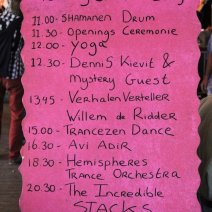 11.00 - Shamanen Drum
11.30 - Openings Ceremonie
12.00 - Yoga
12.30 - Dennis Kievit &
Mystery Guest
1345 - Verhalen Verteller
Willem de Ridder
15.00 - Trancezen Dance
16.30 - Avi Adir
18.30 - Hemispheres
Trance Orchestra
20.30 - The Incredible
STACKS